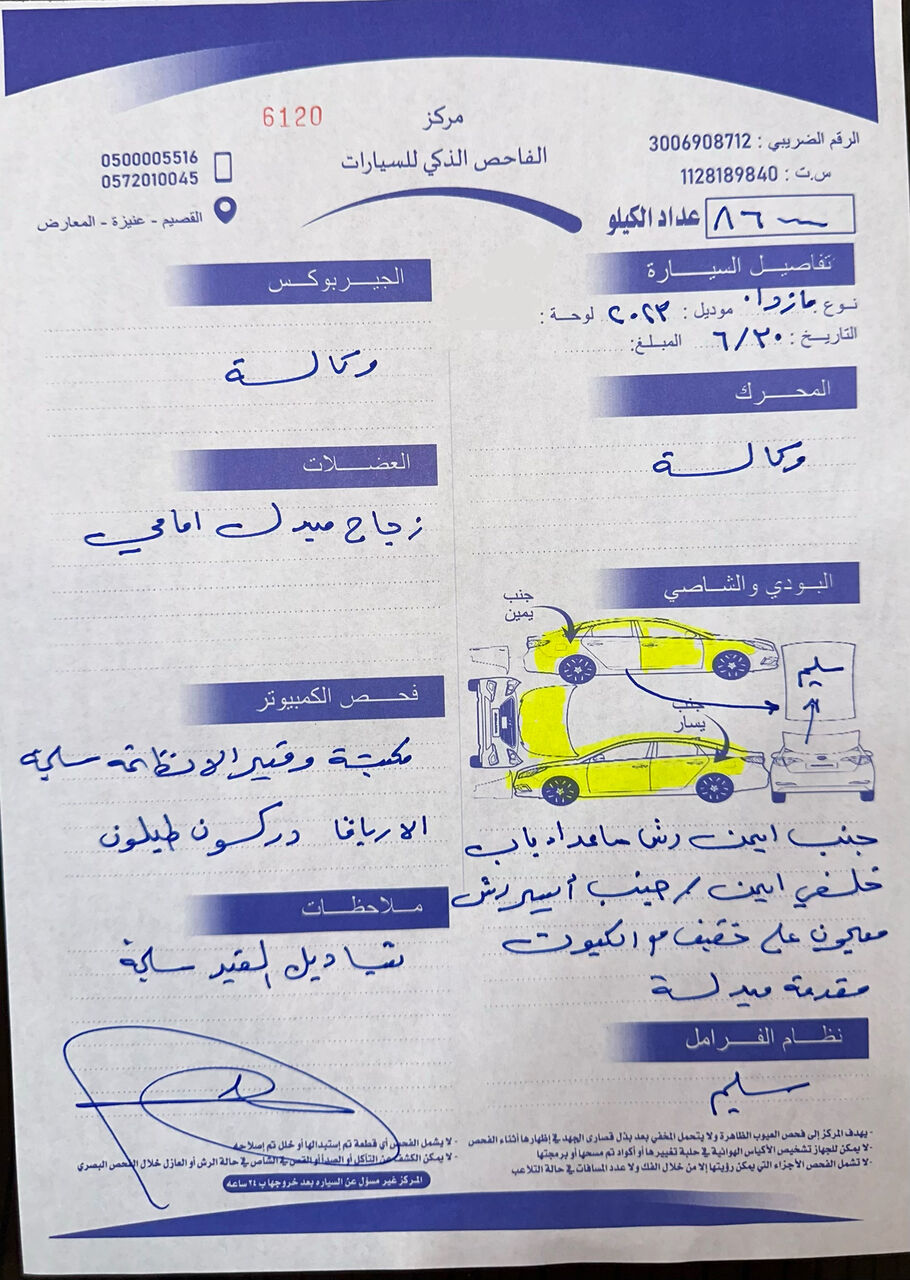 6120
مركز
الفاحص الذكي للسيارات
الرقم الضريبي : 3006908712
س.ت : 1128189840
0500005516
0572010045
القصيم - عنيزة - المعارض
عداد الكيلو ٨٦
تفاصيل السيــارة
نوع : مازدا موديل : ٢٠٢٣ لوحة :
التاريخ : ٦/٣٠ المبلغ:
المحرك
وكالة
البودي والشاصي
جنب يمين
جنب يسار
سليم
جنب ايمن رش ماعدا باب
خلفي ايمن / جنب أيسر رش
معجون على خفيف مع الكبوت
مقدمة مبدلة
نظام الفرامل
سليم
الجيربوكس
وكالة
العضلات
زجاج مبدل امامي
فحص الكمبيوتر
سليمة
الارباقا دركسون طبلون
ملاحظات
سليمة
- يهدف المركز إلى فحص العيوب الظاهرة ولا يتحمل المخفي بعد بذل قصارى الجهد في إظهارها أثناء الفحص
- لا يمكن للجهاز تشخيص الأكياس الهوائية في حلبة تغييرها أو أكواد تم مسحها أو برمجتها
- لا تشمل الفحص الأجزاء التي يمكن رؤيتها إلا من خلال الفك ولا عدد المسافات في حالة التلاعب
- لا يشمل الفحص أي قطعة تم إستبدالها أو خلل تم إصلاحه
- لا يمكن الكشف عن التآكل أو الصدأ أو القص في الشاص في حالة الرش أو العازل خلال الفحص البصري
المركز غير مسؤل عن السياره بعد خروجها ب ٢٤ ساعه